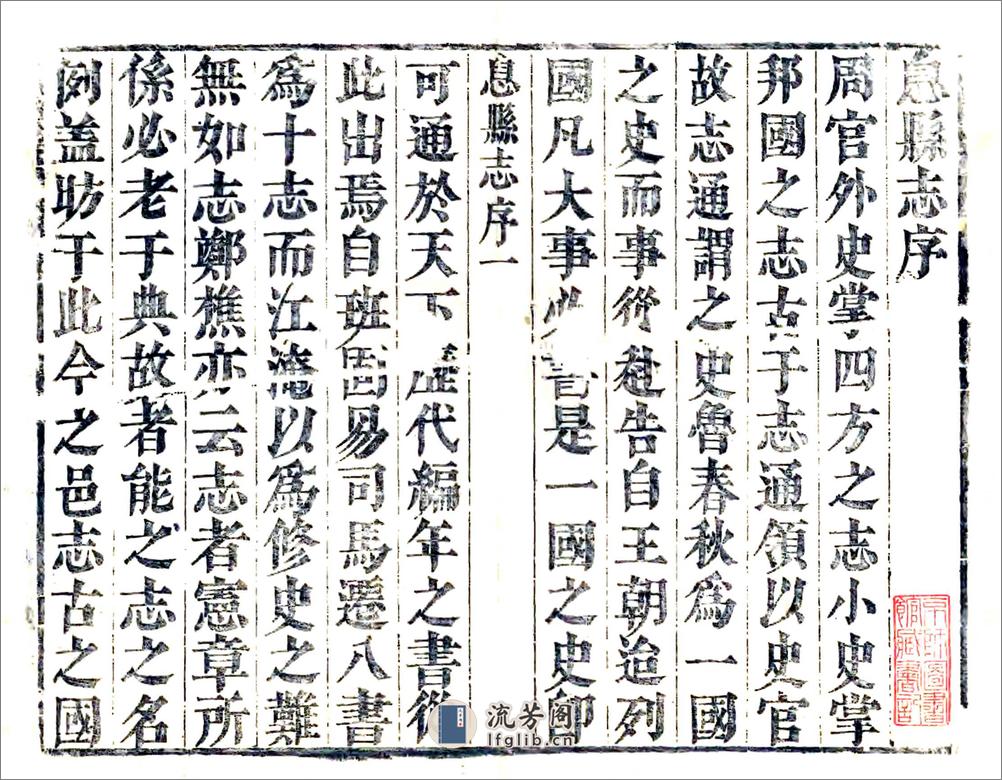 息縣志序
周官外史掌四方之志小史掌
邦國之志古于志通領以史官
故志通謂之史魯春秋爲一國
之史而事從赴告自王朝迨列
國凡大事必書是一國之史卽
息縣志序一
可通於天下歷代編年之書從
此出焉自班固易司馬遷八書
爲十志而江淹以爲修史之難
無如志鄭樵亦云志者憲章所
係必老于典故者能之志之名
例蓋昉于此今之邑志古之國
流芳阁
lfglib.cn